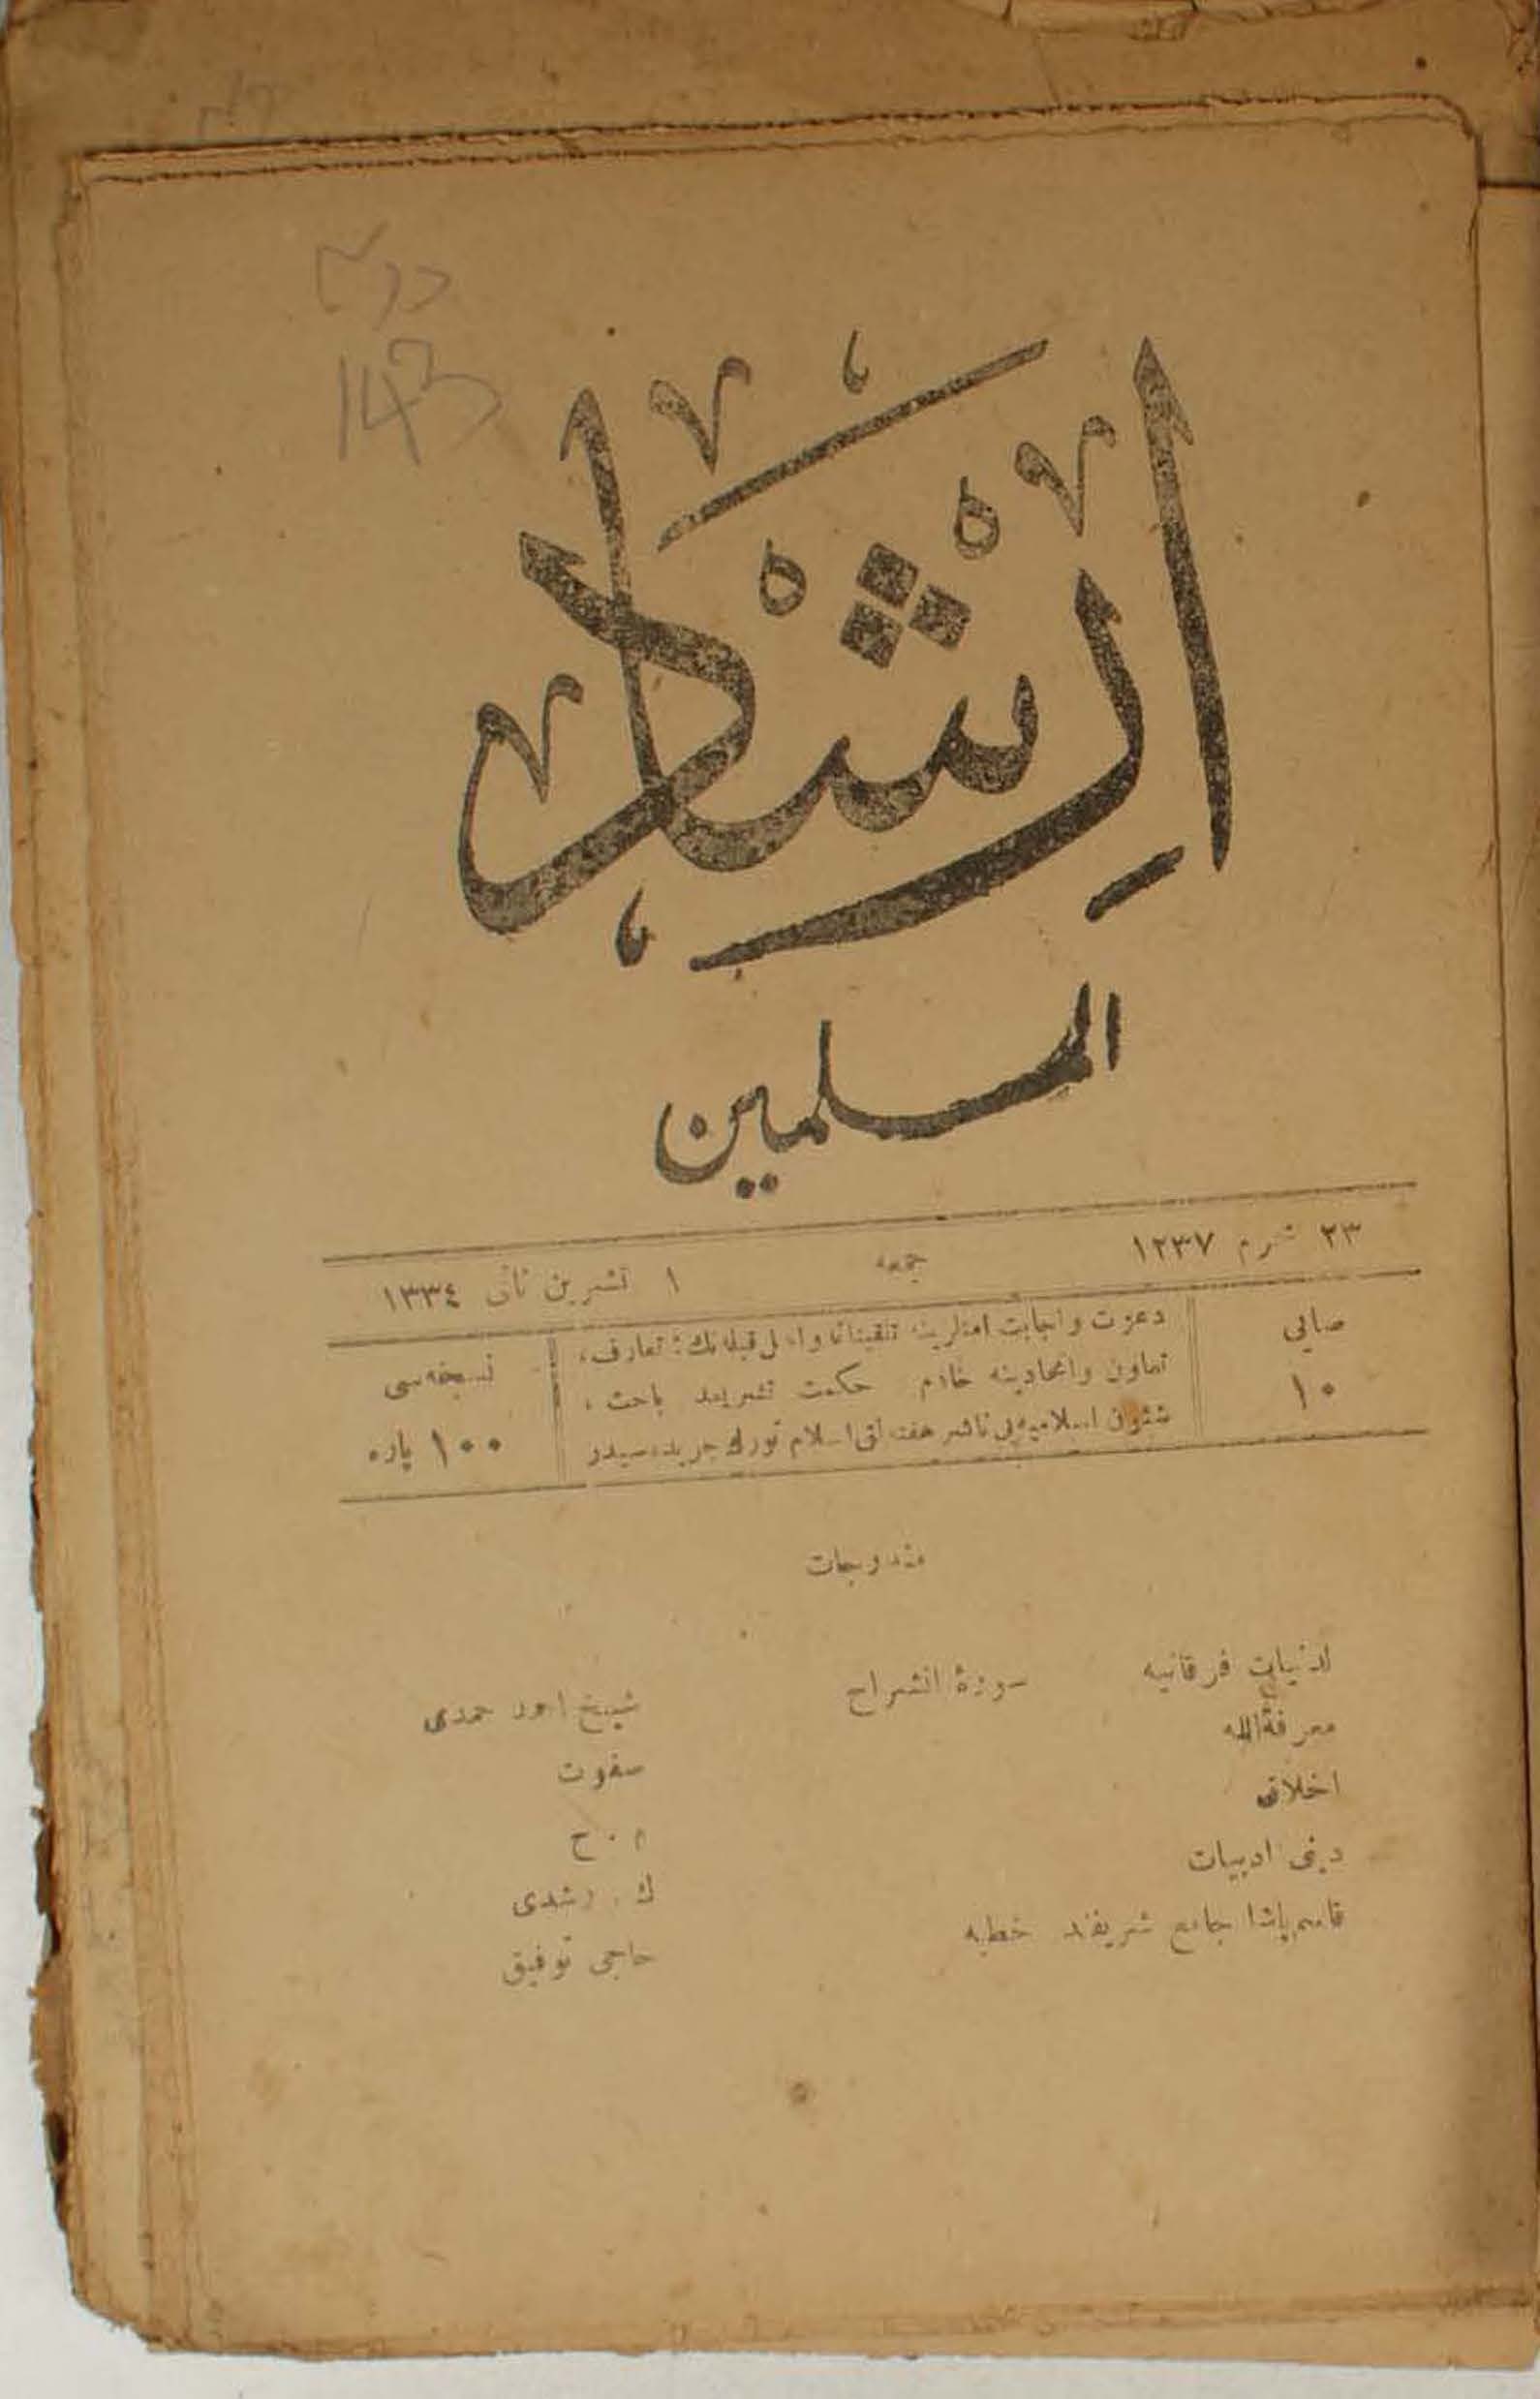 143
ارشاد
المسلمين
٢٣ محرم ١٢٣٧ جمعه ١ تشرين ثانی ١٣٣٤
صايى
١٠
دعوت و اجابت امتلرينه تلقيناته و اهل قبله نك : تعارف ،
تعاون واتحادينه خادم حكمت تشريعدن باحث ،
شئون اسلاميه يى ناشر هفته لق اسلام تورك جريده سيدر
نسخه سى
١٠٠ پاره
مندرجات
لدنيات فرقانيه سورۀ انشراح شيخ احمد حمدى
معرفة الله صفوت
اخلاق م . ح
دينى ادبيات ك . رشدى
قاسم پاشا جامع شريفنده خطبه حاجى توفيق